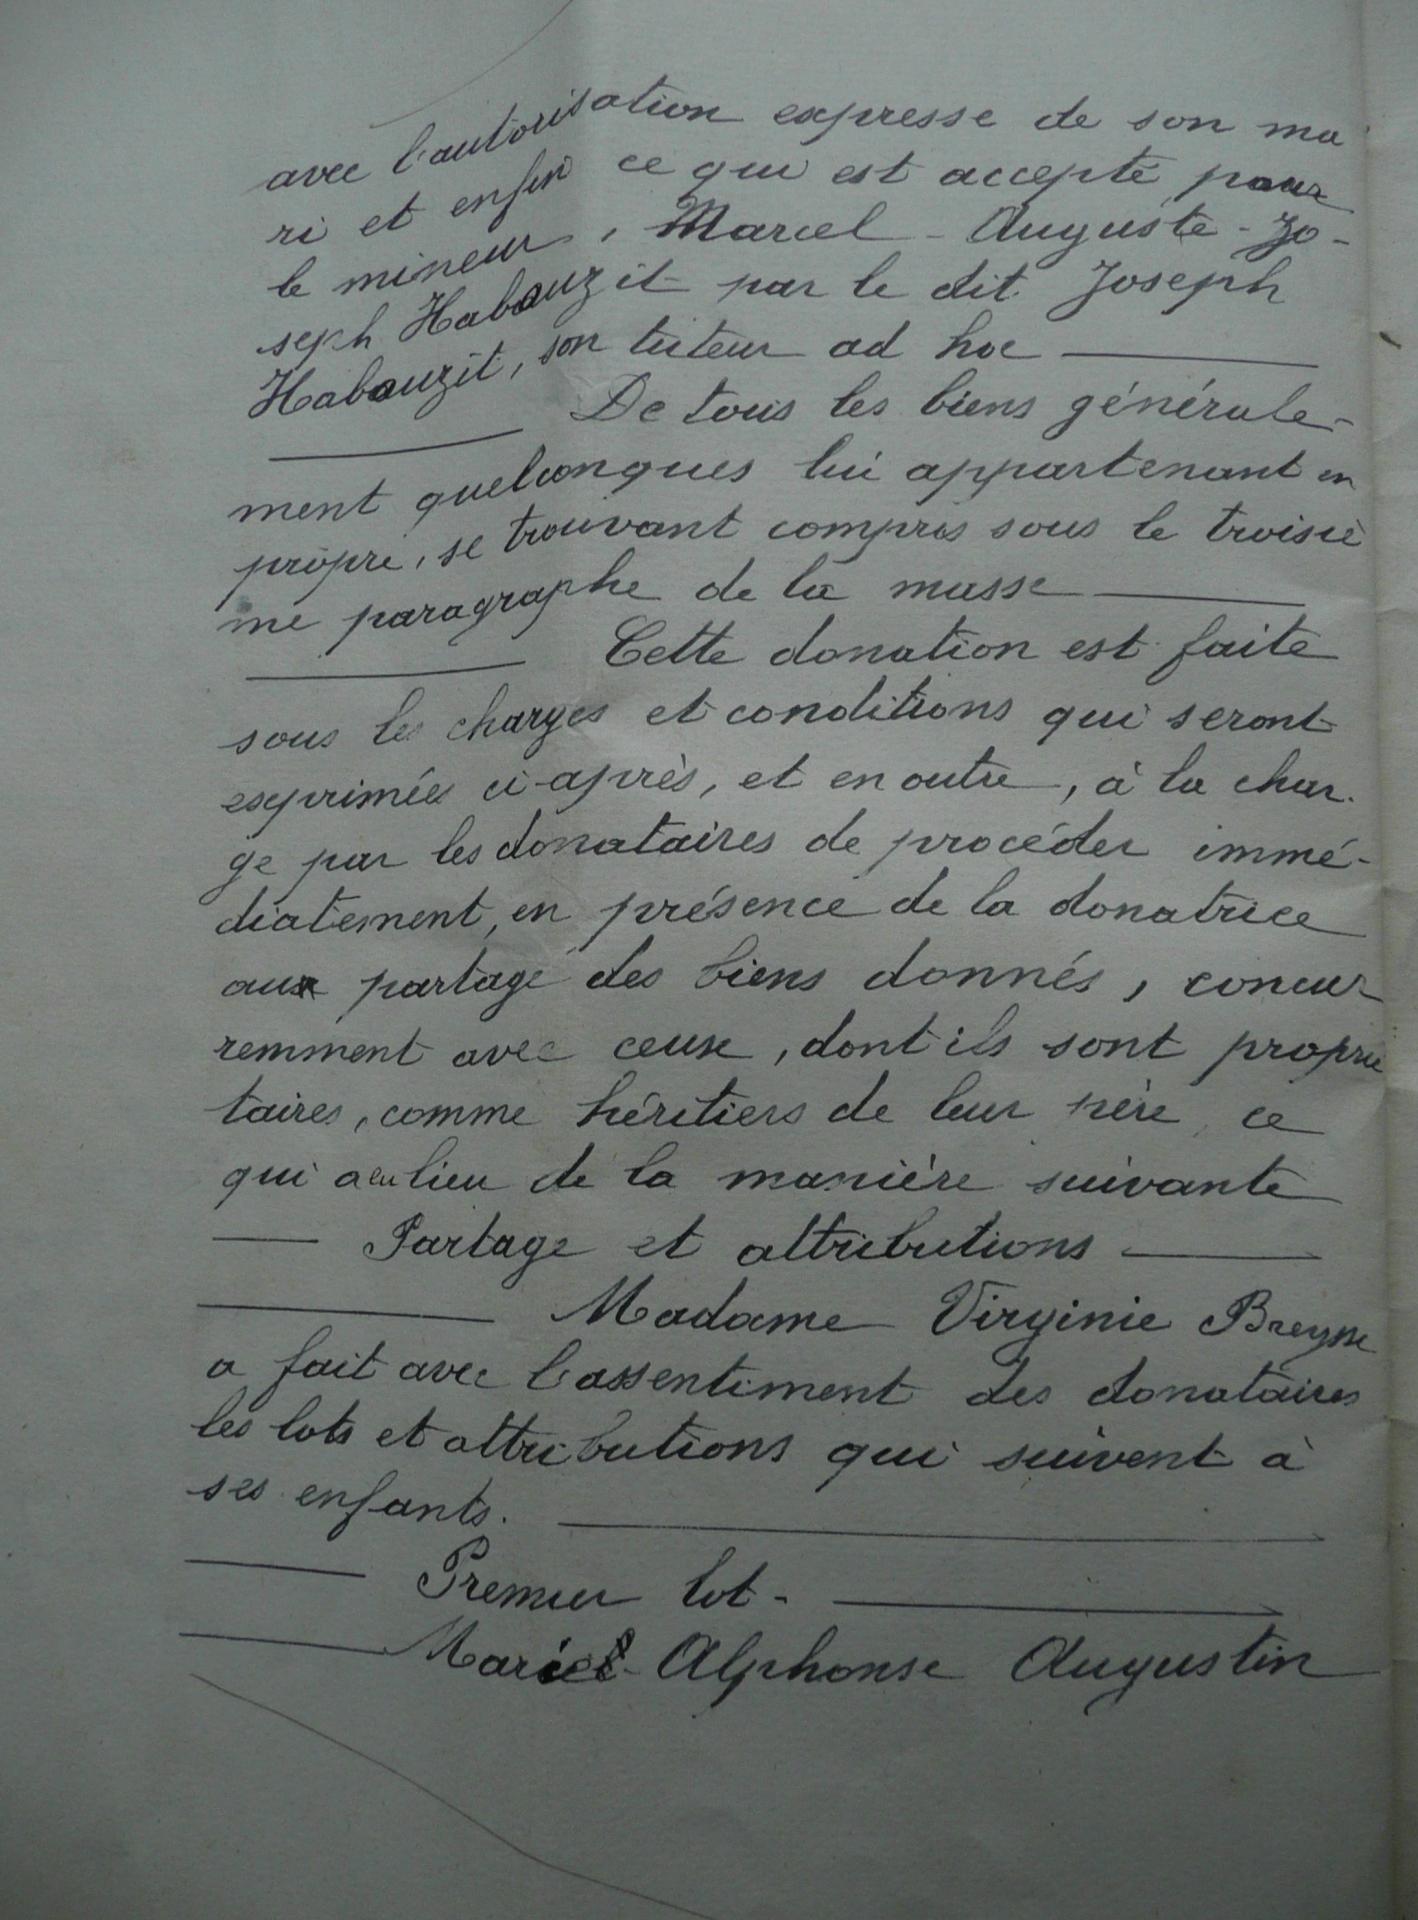 avec l'autorisation expresse de son ma
ri et enfin ce qui est accepté pour
le mineur, Marcel - Auguste - Jo-
seph Habauzit par le dit Joseph
Habauzit, son tuteur ad hoc
De tous les biens générale-
ment quelconques lui appartenant en
propre, se trouvant compris sous le troisiè
me paragraphe de la masse
Cette donation est faite
sous les charges et conditions qui seront
exprimées ci-après, et en outre, à la char-
ge par les donataires de procéder immé-
diatement, en présence de la donatrice
aux partage des biens donnés, concur
remment avec ceux, dont ils sont proprié
taires, comme héritiers de leur père, ce
qui a eu lieu de la manière suivante
Partage et attributions
Madame Virginie Breysse
a fait avec l'assentiment des donataires
les lots et attributions qui suivent à
ses enfants.
Premier lot -
Alphonse Augustin